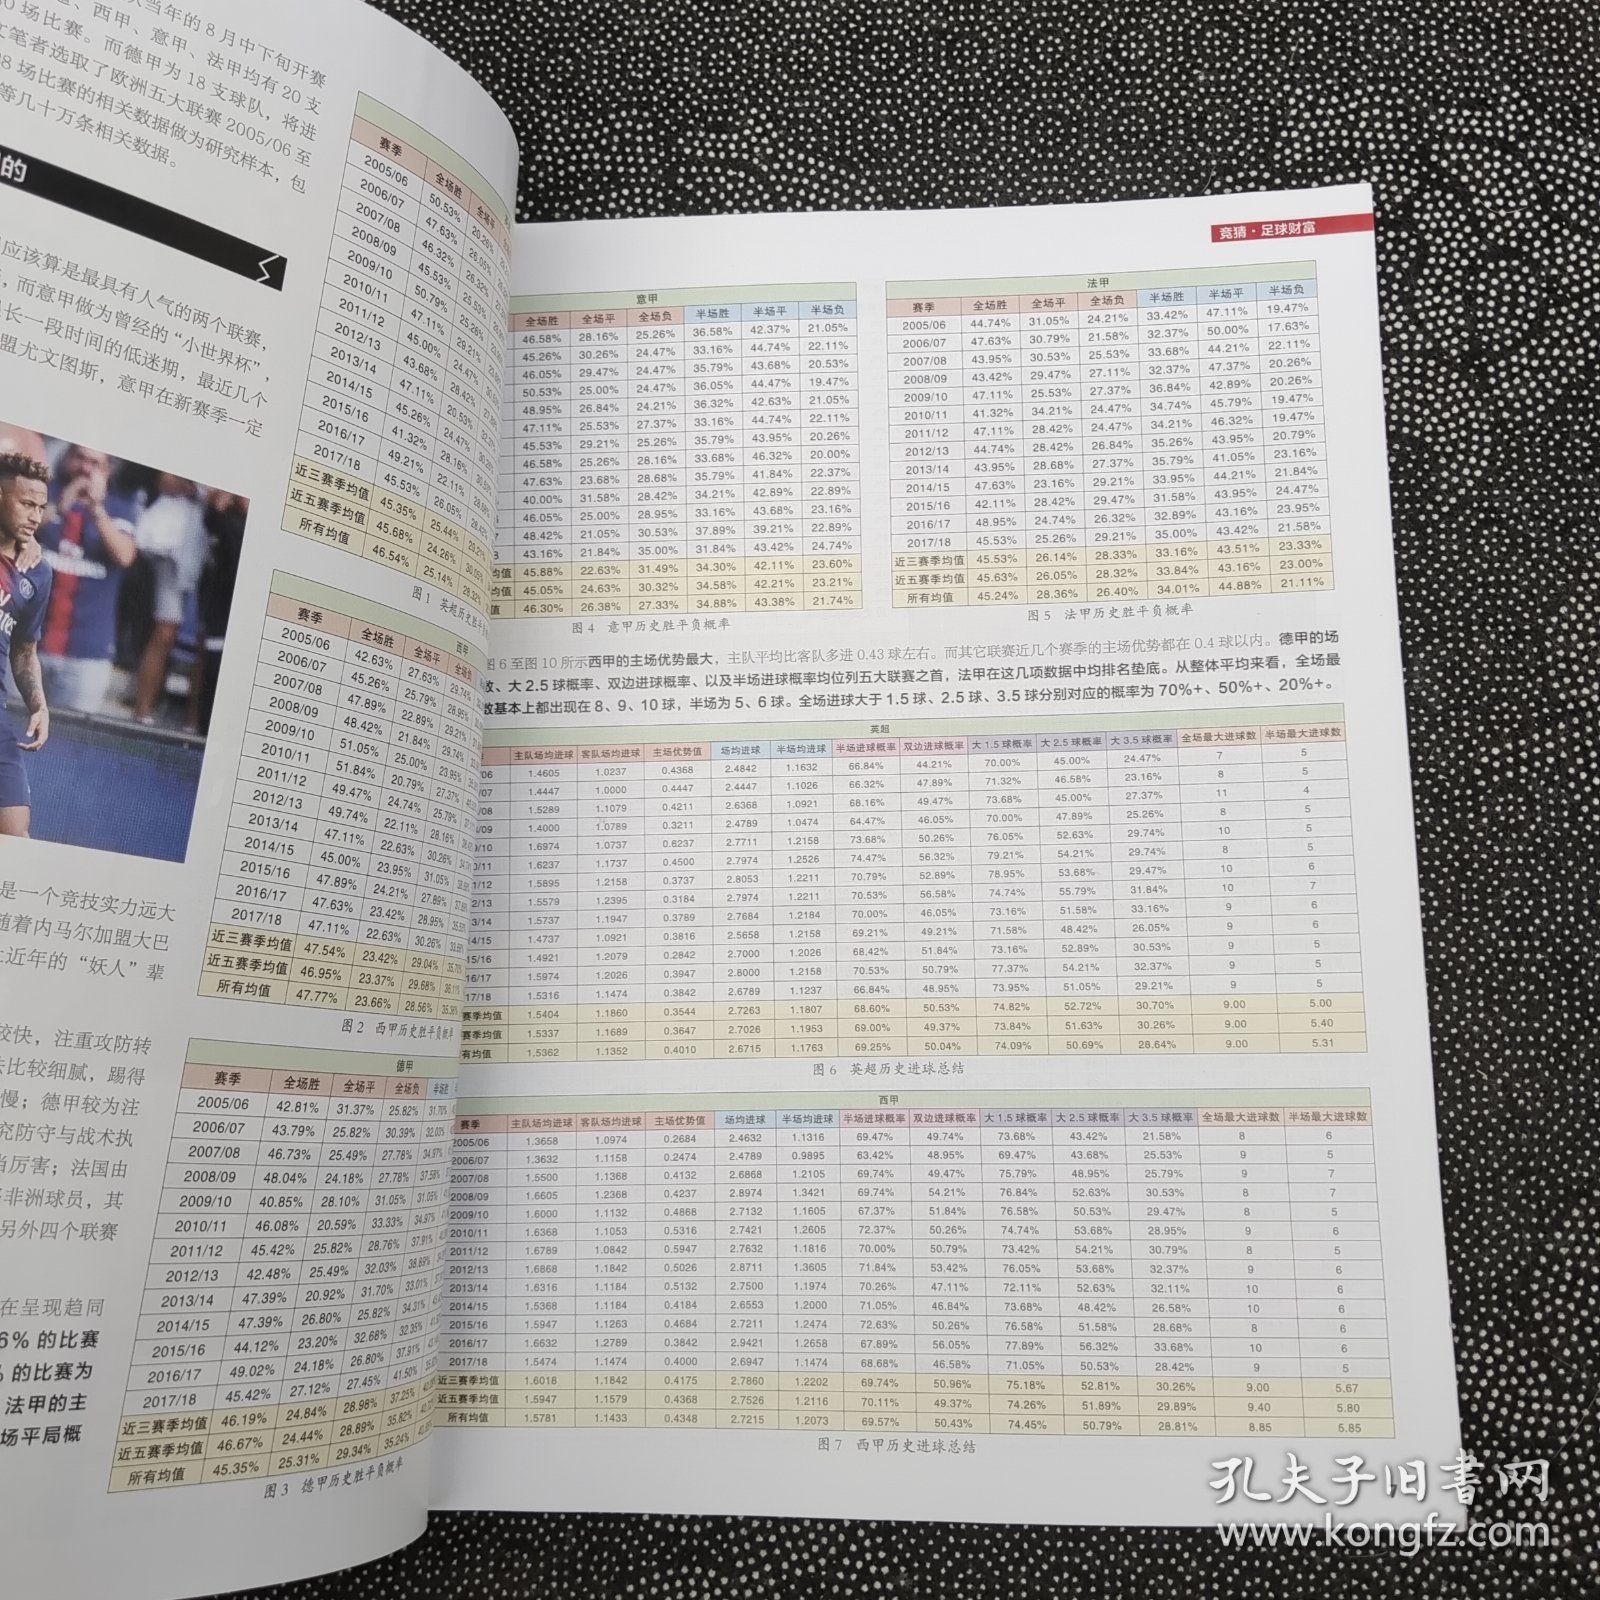 当年的8月中下旬开赛
、西甲、意甲、法甲均有20支
场比赛。而德甲为18支球队，将进
笔者选取了欧洲五大联赛2005/06至
8场比赛的相关数据做为研究样本，包
等几十万条相关数据。
的
应该算是最具有人气的两个联赛，
，而意甲做为曾经的“小世界杯”，
长一段时间的低迷期，最近几个
盟尤文图斯，意甲在新赛季一定
是一个竞技实力远大
随着内马尔加盟大巴
近年的“妖人”辈
较快，注重攻防转
比较细腻，踢得
慢；德甲较为注
究防守与战术执
当厉害；法国由
非洲球员，其
另外四个联赛
在呈现趋同
6%的比赛
的比赛为
法甲的主
场平局概
赛季 全场胜 全场平
2005/06 50.53% 20.26%
2006/07 47.63%
2007/08 46.32%
2008/09 45.53%
2009/10 50.79%
2010/11 47.11%
2011/12 45.00%
2012/13 43.68%
2013/14 47.11%
2014/15 45.26%
2015/16 41.32%
2016/17 49.21%
2017/18 45.53%
近三赛季均值 45.35% 25.44%
近五赛季均值 45.68% 24.26%
所有均值 46.54% 25.14%
图1 英超历史胜平负概率
西甲
赛季 全场胜 全场平 全场负
2005/06 42.63% 27.63% 29.74%
2006/07 45.26% 25.79% 28.95%
2007/08 47.89% 22.89% 29.21%
2008/09 48.42% 21.84% 29.74%
2009/10 51.05% 25.00% 23.95%
2010/11 51.84% 20.79% 27.37%
2011/12 49.47% 24.74% 25.79%
2012/13 49.74% 22.11% 28.16%
2013/14 47.11% 22.63% 30.26%
2014/15 45.00% 23.95% 31.05%
2015/16 47.89% 24.21% 27.89%
2016/17 47.63% 23.42% 28.95%
2017/18 47.11% 22.63% 30.26%
近三赛季均值 47.54% 23.42% 29.04%
近五赛季均值 46.95% 23.37% 29.68%
所有均值 47.77% 23.66% 28.56%
图2 西甲历史胜平负概率
德甲
赛季 全场胜 全场平 全场负 半场胜
2005/06 42.81% 31.37% 25.82% 31.70%
2006/07 43.79% 25.82% 30.39% 32.03%
2007/08 46.73% 25.49% 27.78% 34.97%
2008/09 48.04% 24.18% 27.78% 37.58%
2009/10 40.85% 28.10% 31.05% 31.05%
2010/11 46.08% 20.59% 33.33% 34.97%
2011/12 45.42% 25.82% 28.76% 37.91%
2012/13 42.48% 25.49% 32.03% 38.89%
2013/14 47.39% 20.92% 31.70% 33.01%
2014/15 47.39% 26.80% 25.82% 34.31%
2015/16 44.12% 23.20% 32.68% 32.35%
2016/17 49.02% 24.18% 26.80% 37.91%
2017/18 45.42% 27.12% 27.45% 41.50%
近三赛季均值 46.19% 24.84% 28.98% 37.25%
近五赛季均值 46.67% 24.44% 28.89% 35.82%
所有均值 45.35% 25.31% 29.34% 35.24%
图3 德甲历史胜平负概率
竞猜·足球财富
意甲
全场胜 全场平 全场负 半场胜 半场平 半场负
46.58% 28.16% 25.26% 36.58% 42.37% 21.05%
45.26% 30.26% 24.47% 33.16% 44.74% 22.11%
46.05% 29.47% 24.47% 35.79% 43.68% 20.53%
50.53% 25.00% 24.47% 36.05% 44.47% 19.47%
48.95% 26.84% 24.21% 36.32% 42.63% 21.05%
47.11% 25.53% 27.37% 33.16% 44.74% 22.11%
45.53% 29.21% 25.26% 35.79% 43.95% 20.26%
46.58% 25.26% 28.16% 33.68% 46.32% 20.00%
47.63% 23.68% 28.68% 35.79% 41.84% 22.37%
40.00% 31.58% 28.42% 34.21% 42.89% 22.89%
46.05% 25.00% 28.95% 33.16% 43.68% 23.16%
48.42% 21.05% 30.53% 37.89% 39.21% 22.89%
43.16% 21.84% 35.00% 31.84% 43.42% 24.74%
均值 45.88% 22.63% 31.49% 34.30% 42.11% 23.60%
均值 45.05% 24.63% 30.32% 34.58% 42.21% 23.21%
值 46.30% 26.38% 27.33% 34.88% 43.38% 21.74%
图4 意甲历史胜平负概率
法甲
赛季 全场胜 全场平 全场负 半场胜 半场平 半场负
2005/06 44.74% 31.05% 24.21% 33.42% 47.11% 19.47%
2006/07 47.63% 30.79% 21.58% 32.37% 50.00% 17.63%
2007/08 43.95% 30.53% 25.53% 33.68% 44.21% 22.11%
2008/09 43.42% 29.47% 27.11% 32.37% 47.37% 20.26%
2009/10 47.11% 25.53% 27.37% 36.84% 42.89% 20.26%
2010/11 41.32% 34.21% 24.47% 34.74% 45.79% 19.47%
2011/12 47.11% 28.42% 24.47% 34.21% 46.32% 19.47%
2012/13 44.74% 28.42% 26.84% 35.26% 43.95% 20.79%
2013/14 43.95% 28.68% 27.37% 35.79% 41.05% 23.16%
2014/15 47.63% 23.16% 29.21% 33.95% 44.21% 21.84%
2015/16 42.11% 28.42% 29.47% 31.58% 43.95% 24.47%
2016/17 48.95% 24.74% 26.32% 32.89% 43.16% 23.95%
2017/18 45.53% 25.26% 29.21% 35.00% 43.42% 21.58%
近三赛季均值 45.53% 26.14% 28.33% 33.16% 43.51% 23.33%
近五赛季均值 45.63% 26.05% 28.32% 33.84% 43.16% 23.00%
所有均值 45.24% 28.36% 26.40% 34.01% 44.88% 21.11%
图5 法甲历史胜平负概率
图6至图10所示西甲的主场优势最大，主队平均比客队多进0.43球左右。而其它联赛近几个赛季的主场优势都在0.4球以内。德甲的场
、大2.5球概率、双边进球概率、以及半场进球概率均位列五大联赛之首，法甲在这几项数据中均排名垫底。从整体平均来看，全场最
数基本上都出现在8、9、10球，半场为5、6球。全场进球大于1.5球、2.5球、3.5球分别对应的概率为70%+、50%+、20%+。
英超
主队场均进球 客队场均进球 主场优势值 场均进球 半场均进球 半场进球概率 双边进球概率 大1.5球概率 大2.5球概率 大3.5球概率 全场最大进球数 半场最大进球数
/06 1.4605 1.0237 0.4368 2.4842 1.1632 66.84% 44.21% 70.00% 45.00% 24.47% 7 5
/07 1.4447 1.0000 0.4447 2.4447 1.1026 66.32% 47.89% 71.32% 46.58% 23.16% 8 5
/08 1.5289 1.1079 0.4211 2.6368 1.0921 68.16% 49.47% 73.68% 45.00% 27.37% 11 4
/09 1.4000 1.0789 0.3211 2.4789 1.0474 64.47% 46.05% 70.00% 47.89% 25.26% 8 5
/10 1.6974 1.0737 0.6237 2.7711 1.2158 73.68% 50.26% 76.05% 52.63% 29.74% 10 5
/11 1.6237 1.1737 0.4500 2.7974 1.2526 74.47% 56.32% 79.21% 54.21% 29.74% 8 5
/12 1.5895 1.2158 0.3737 2.8053 1.2211 70.79% 52.89% 78.95% 53.68% 29.47% 10 6
2/13 1.5579 1.2395 0.3184 2.7974 1.2211 70.53% 56.58% 74.74% 55.79% 31.84% 10 7
3/14 1.5737 1.1947 0.3789 2.7684 1.2184 70.00% 46.05% 73.16% 51.58% 33.16% 9 6
14/15 1.4737 1.0921 0.3816 2.5658 1.2158 69.21% 49.21% 71.58% 48.42% 26.05% 9 6
15/16 1.4921 1.2079 0.2842 2.7000 1.2026 68.42% 51.84% 73.16% 52.89% 30.53% 9 5
16/17 1.5974 1.2026 0.3947 2.8000 1.2158 70.53% 50.79% 77.37% 54.21% 32.37% 9 5
17/18 1.5316 1.1474 0.3842 2.6789 1.1237 66.84% 48.95% 73.95% 51.05% 29.21% 9 5
赛季均值 1.5404 1.1860 0.3544 2.7263 1.1807 68.60% 50.53% 74.82% 52.72% 30.70% 9.00 5.00
赛季均值 1.5337 1.1689 0.3647 2.7026 1.1953 69.00% 49.37% 73.84% 51.63% 30.26% 9.00 5.40
有均值 1.5362 1.1352 0.4010 2.6715 1.1763 69.25% 50.04% 74.09% 50.69% 28.64% 9.00 5.31
图6 英超历史进球总结
西甲
赛季 主队场均进球 客队场均进球 主场优势值 场均进球 半场均进球 半场进球概率 双边进球概率 大1.5球概率 大2.5球概率 大3.5球概率 全场最大进球数 半场最大进球数
2005/06 1.3658 1.0974 0.2684 2.4632 1.1316 69.47% 49.74% 73.68% 43.42% 21.58% 8 6
2006/07 1.3632 1.1158 0.2474 2.4789 0.9895 63.42% 48.95% 69.47% 43.68% 25.53% 9 5
2007/08 1.5500 1.1368 0.4132 2.6868 1.2105 69.74% 49.47% 75.79% 48.95% 25.79% 9 7
2008/09 1.6605 1.2368 0.4237 2.8974 1.3421 69.74% 54.21% 76.84% 52.63% 30.53% 8 7
2009/10 1.6000 1.1132 0.4868 2.7132 1.1605 67.37% 51.84% 76.58% 50.53% 29.47% 8 5
2010/11 1.6368 1.1053 0.5316 2.7421 1.2605 72.37% 50.26% 74.74% 53.68% 28.95% 9 6
2011/12 1.6789 1.0842 0.5947 2.7632 1.1816 70.00% 50.79% 73.42% 54.21% 30.79% 8 5
2012/13 1.6868 1.1842 0.5026 2.8711 1.3605 71.84% 53.42% 76.05% 53.68% 32.37% 9 6
2013/14 1.6316 1.1184 0.5132 2.7500 1.1974 70.26% 47.11% 72.11% 52.63% 32.11% 10 6
2014/15 1.5368 1.1184 0.4184 2.6553 1.2000 71.05% 46.84% 73.68% 48.42% 26.58% 10 6
2015/16 1.5947 1.1263 0.4684 2.7211 1.2474 72.63% 50.26% 76.58% 51.58% 28.68% 8 6
2016/17 1.6632 1.2789 0.3842 2.9421 1.2658 67.89% 56.05% 77.89% 56.32% 33.68% 10 6
2017/18 1.5474 1.1474 0.4000 2.6947 1.1474 68.68% 46.58% 71.05% 50.53% 28.42% 9 5
近三赛季均值 1.6018 1.1842 0.4175 2.7860 1.2202 69.74% 50.96% 75.18% 52.81% 30.26% 9.00 5.67
近五赛季均值 1.5947 1.1579 0.4368 2.7526 1.2116 70.11% 49.37% 74.26% 51.89% 29.89% 9.40 5.80
所有均值 1.5781 1.1433 0.4348 2.7215 1.2073 69.57% 50.43% 74.45% 50.79% 28.81% 8.85 5.85
图7 西甲历史进球总结
孔夫子旧书网
www.kongfz.com